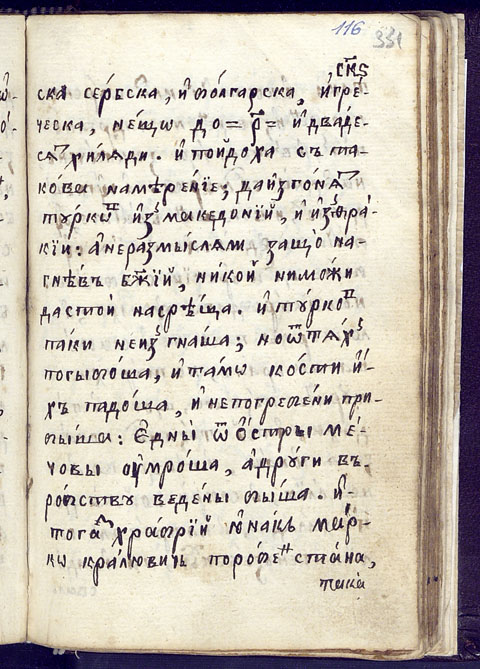 116 331
скѕ҃
ска се́рбска, и҆ бо́лгарска, и҆гре́-
ческа, не́щѡ до = р҃ = и҆ два́де-
сѧт хи́лѧди. и҆ пойдо́ха съ та-
ко́ва намѣре́нїе; даи҆згонѧт
ту́ркѡв и҆з̾ македо́нїй, и҆ и҆з̾ѳра́-
кїи: а҆неразмы́слѧли защо̀ на-
гнѣ́въ бж҃їй, ни́кой ни мо́жи
дастои́ насрѣ́ща. и҆ ту́ркоⷡ
па́ки неи҆згна́ша; но ѿ тѧ́х̾
погы́боша, и҆ та́мѡ ко́сти и҆́-
хъ падо́ша, и҆ непогребе́ни при-
бы́ша: є҆дны̀ ѿ ѻ҆́стры ме-
човы̀ ᲂу҆мро́ша, а҆ дрꙋ́ги въ-
ро́пству веде́ны бы́ша. и҆-
тога́ хра́брїй ю҆на́къ ма́р-
кѡ кра́левичь поробе́н ста́на,
така̀